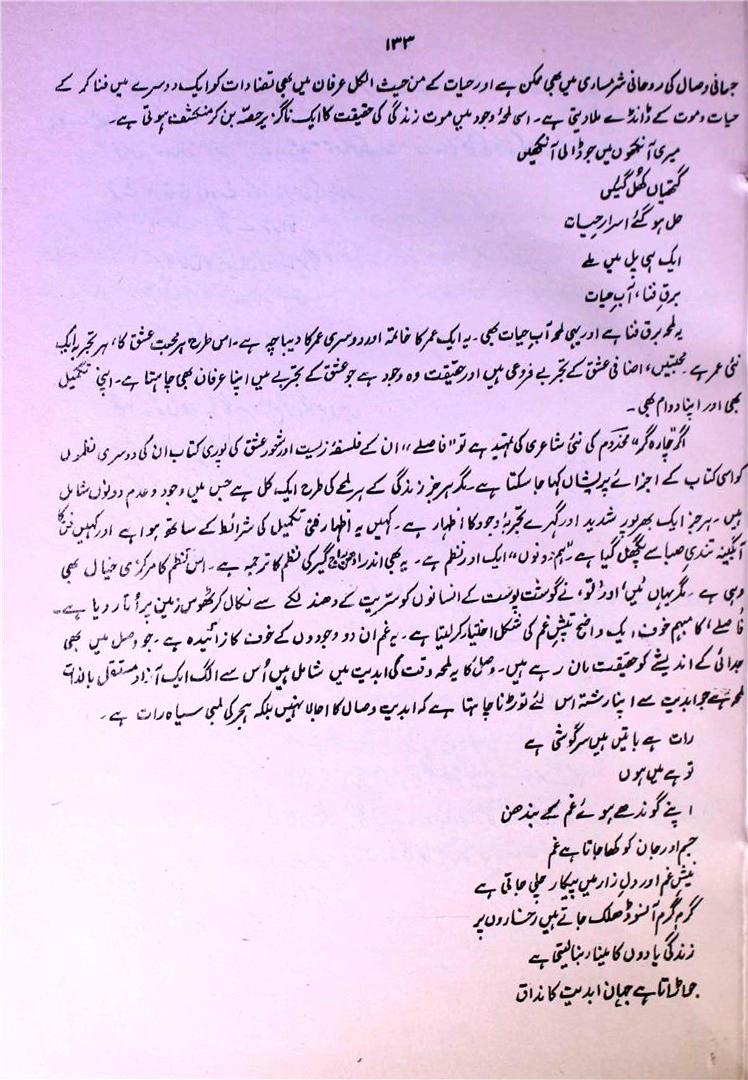 ۱۳۳
جہانی وصال کی روحانی شرمساری میں بھی ممکن ہے اور حیات کے من حیث الکل عرفان میں بھی تضادات کو ایک دوسرے میں فنا کر کے
حیات و موت کے ڈانڈے ملا دیتی ہے۔ اسی لمحۂ وجود میں موت زندگی کی حقیقت کا ایک ناگزیر حصّہ بن کر منکشف ہوتی ہے۔
میری آنکھوں میں جو ڈالی آنکھیں
گتھیاں کھُل گئیں
حل ہو گئے اسرارِ حیات
ایک ہی پل میں ملے
برقِ فنا، آبِ حیات
یہ لمحہ برق فنا ہے اور یہی لمحہ آبِ حیات بھی۔ یہ ایک عمر کا خاتمہ اور دوسری عمر کا دیباچہ ہے۔ اس طرح ہر محبت عشق کا، ہر تجربہ ایک
نئی عمر ہے۔ محبتیں، اضافی عشق کے تجربے فروعی ہیں اور حقیقت وہ وجود ہے جو عشق کے تجربے میں اپنا عرفان بھی چاہتا ہے۔ اپنی تکمیل
بھی اور اپنا دوام بھی۔
اگر "چارہ گر" مخدوم کی نئی شاعری کی تمہید ہے تو "فاصلے" ان کے فلسفۂ زیست اور شعورِ عشق کی پوری کتاب ان کی دوسری نظموں
کو اسی کتاب کے اجزائے پریشاں کہا جا سکتا ہے۔ مگر ہر جز زندگی کے ہر لمحے کی طرح ایک کل ہے جس میں وجود و عدم دونوں شامل
ہیں۔ ہر جز ایک بھرپور شدید اور گہرے تجربۂ وجود کا اظہار ہے۔ کہیں یہ اظہار فنی تکمیل کی شرائط کے ساتھ ہوا ہے اور کہیں فن کا
آبگینہ تندیِ صہبا سے پگھل گیا ہے۔ "ہم دونوں" ایک اور نظم ہے۔ یہ بھی اندرا دھن راج گیر کی نظم کا ترجمہ ہے۔ اس نظم کا مرکزی خیال بھی
وہی ہے۔ مگر یہاں 'میں' اور 'تو' نے گوشت پوست کے انسانوں کو سرّیت کے دھندلکے سے نکال کر ٹھوس زمین پر اُتار دیا ہے۔
فاصلے' کا مبہم خوف ایک واضح نیشِ غم کی شکل اختیار کر لیتا ہے۔ یہ غم ان دو وجودوں کے خوف کا زائیدہ ہے۔ جو وصل میں بھی
جدائی کے اندیشے کو حقیقت مان رہے ہیں۔ وصل کا یہ لمحہ وقت کی ابدیت میں شامل ہیں اُس سے الگ ایک آزاد مستقل بالذات
لمحہ ہے جو ابدیت سے اپنا رشتہ اس لئے توڑنا چاہتا ہے کہ ابدیت وصال کا اجالا نہیں بلکہ ہجر کی لمبی سیاہ رات ہے۔
رات ہے باتیں ہیں سرگوشی ہے
تو ہے میں ہوں
اپنے گوندھے ہوئے غم کے بندھن
جسم اور جان کو کھا جاتا ہے غم
نیشِ غم اور دلِ زار میں پیکار چلی جاتی ہے
گرم گرم آنسو ڈھلک جاتے ہیں رخساروں پر
زندگی یادوں کا مینار بنا لیتی ہے
جو اڑاتا ہے جہانِ ابدیت کا مذاق